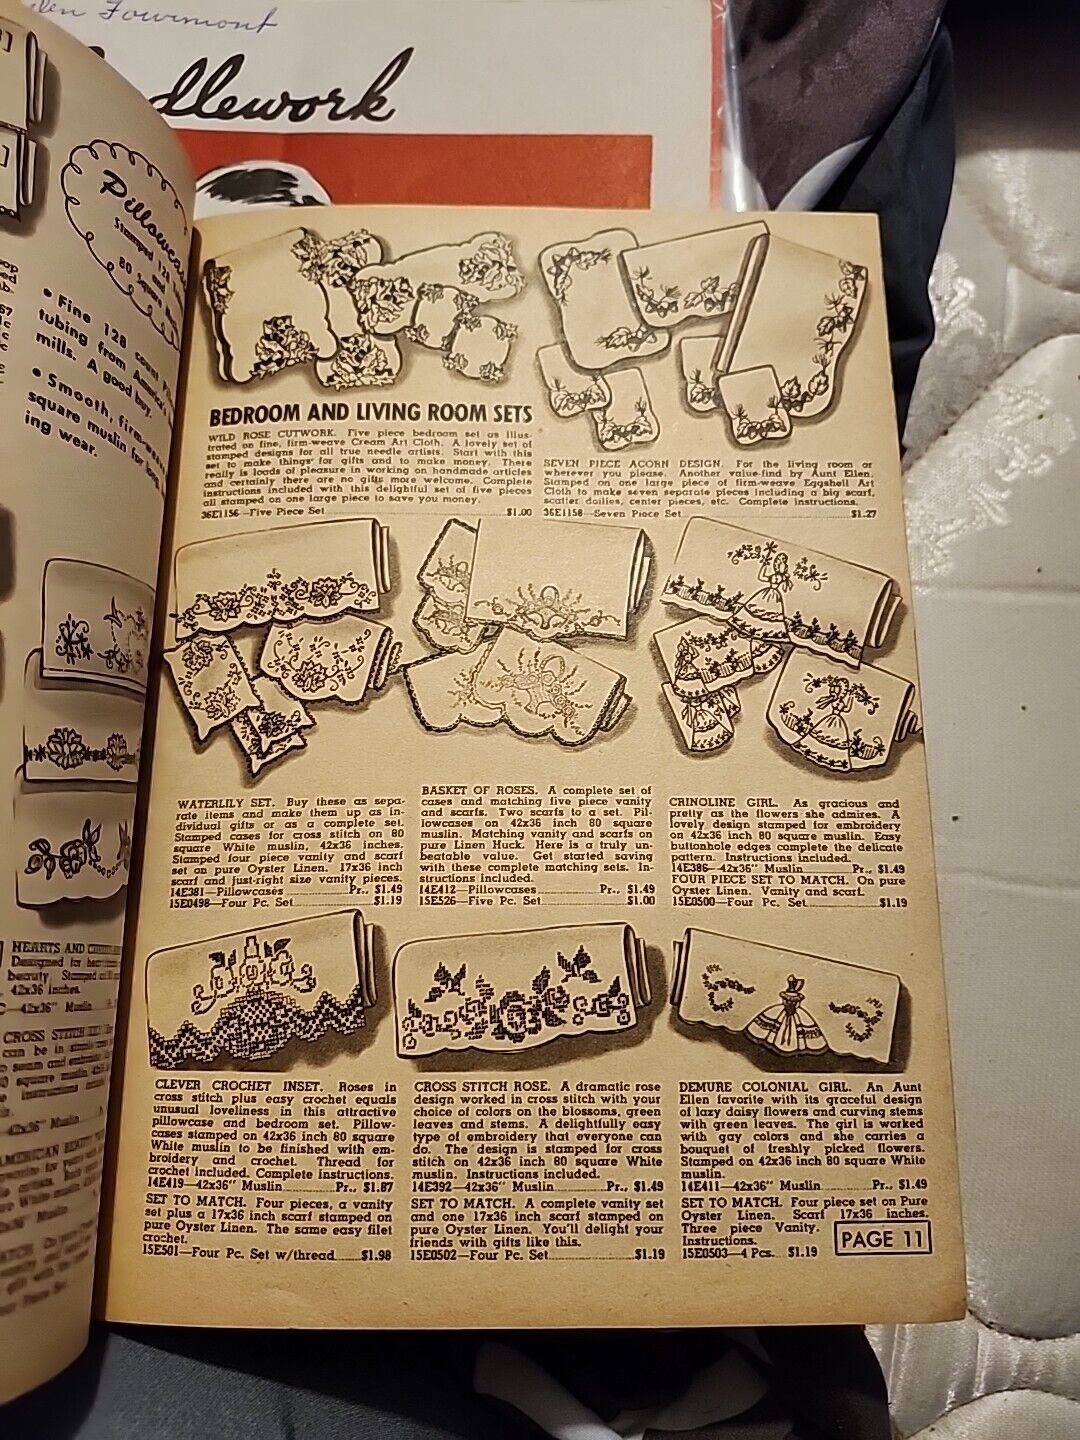 Fourmont
dlework
Pillowcas
Stamped 128
and
80 Square
• Fine 128 count
tubing from America's
mills. A good buy.
• Smooth, firm-weave
square muslin for long
ing wear.
HEARTS AND
Designed for
beauty. Stamped
42x36 inches.
42x36" Muslin
CROSS STITCH
can be in
42x36" Muslin
AMERICAN BEAUTY
BEDROOM AND LIVING ROOM SETS
WILD ROSE CUTWORK. Five piece bedroom set as illus-
trated on fine, firm-weave Cream Art Cloth. A lovely set of
stamped designs for all true needle artists. Start with this
set to make things for gifts and to make money. There
really is loads of pleasure in working on handmade articles
and certainly there are no gifts more welcome. Complete
instructions included with this delightful set of five pieces
all stamped on one large piece to save you money.
36E1156—Five Piece Set $1.00
SEVEN PIECE ACORN DESIGN. For the living room or
wherever you please. Another value-find by Aunt Ellen.
Stamped on one large piece of firm-weave Eggshell Art
Cloth to make seven separate pieces including a big scarf,
scatter doilies, center pieces, etc. Complete instructions.
36E1158—Seven Piece Set $1.27
WATERLILY SET. Buy these as sepa-
rate items and make them up as in-
dividual gifts or as a complete set.
Stamped cases for cross stitch on 80
square White muslin, 42x36 inches.
Stamped four piece vanity and scarf
set on pure Oyster Linen. 17x36 inch
scarf and just-right size vanity pieces.
14E381—Pillowcases Pr., $1.49
15E0498—Four Pc. Set $1.19
BASKET OF ROSES. A complete set of
cases and matching five piece vanity
and scarfs. Two scarfs to a set. Pil-
lowcases on 42x36 inch 80 square
muslin. Matching vanity and scarfs on
pure Linen Huck. Here is a truly un-
beatable value. Get started saving
with these complete matching sets. In-
structions included.
14E412—Pillowcases Pr., $1.49
15E526—Five Pc. Set $1.00
CRINOLINE GIRL. As gracious and
pretty as the flowers she admires. A
lovely design stamped for embroidery
on 42x36 inch 80 square muslin. Easy
buttonhole edges complete the delicate
pattern. Instructions included.
14E386—42x36" Muslin Pr., $1.49
FOUR PIECE SET TO MATCH. On pure
Oyster Linen. Vanity and scarf.
15E0500—Four Pc. Set $1.19
CLEVER CROCHET INSET. Roses in
cross stitch plus easy crochet equals
unusual loveliness in this attractive
pillowcase and bedroom set. Pillow-
cases stamped on 42x36 inch 80 square
White muslin to be finished with em-
broidery and crochet. Thread for
crochet included. Complete Instructions.
14E419—42x36" Muslin Pr., $1.87
SET TO MATCH. Four pieces, a vanity
set plus a 17x36 inch scarf stamped on
pure Oyster Linen. The same easy filet
crochet.
15E501—Four Pc. Set w/thread $1.98
CROSS STITCH ROSE. A dramatic rose
design worked in cross stitch with your
choice of colors on the blossoms, green
leaves and stems. A delightfully easy
type of embroidery that everyone can
do. The design is stamped for cross
stitch on 42x36 inch 80 square White
muslin. Instructions included.
14E392—42x36" Muslin Pr., $1.49
SET TO MATCH. A complete vanity set
and one 17x36 inch scarf stamped on
pure Oyster Linen. You'll delight your
friends with gifts like this.
15E0502—Four Pc. Set $1.19
DEMURE COLONIAL GIRL. An Aunt
Ellen favorite with its graceful design
of lazy daisy flowers and curving stems
with green leaves. The girl is worked
with gay colors and she carries a
bouquet of freshly picked flowers.
Stamped on 42x36 inch 80 square White
muslin.
14E411—42x36" Muslin Pr., $1.49
SET TO MATCH. Four piece set on Pure
Oyster Linen. Scarf 17x36 inches.
Three piece Vanity.
Instructions.
15E0503—4 Pcs. $1.19
PAGE 11